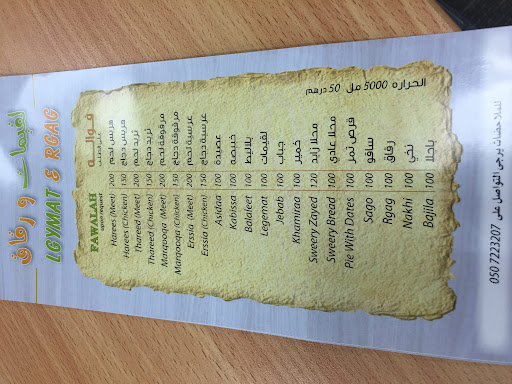 لقيمات و رقاق
LGYMAT & RGAG
FAWALAH فوالة
upon request على الطلب
Harees (Meet) 200 هريس لحم
Harees (Chicken) 150 هريس دجاج
Thareed (Meet) 200 ثريد لحم
Thareed (Chicken) 150 ثريد دجاج
Marqooqa (Meet) 200 مرقوقة لحم
Marqooqa (Chicken) 150 مرقوقة دجاج
Erssia (Meet) 200 عرسية لحم
Erssia (Chicken) 150 عرسية دجاج
Asidaa 100 عصيدة
Kabissa 100 خبيصة
Balaleet 100 بلاليط
Legemat 100 لقيمات
Jebab 100 جباب
Khamiraa 100 خمير
Sweery Zayed 120 محلا زايد
Sweery Bread 100 محلا عادي
Pie With Dates 100 قرص تمر
Sago 100 ساقو
Rgag 100 رقاق
Nakhi 100 نخي
Bajila 100 باجلا
الحراره 5000 مل 50 درهم
للملاحضات يرجى التواصل على 050 7223207